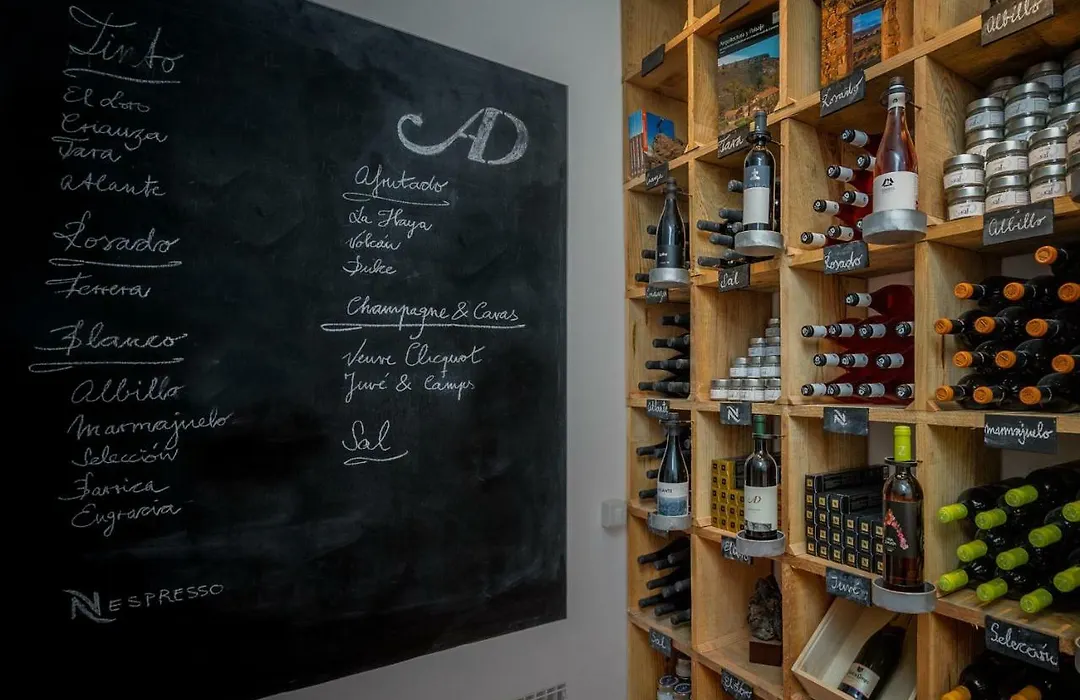 Tinto
El Loro
Crianza
Tara
Atlante
Rosado
Ferrera
Blanco
Albillo
Marmajuelo
Selección
Barrica
Engracia
NESPRESSO
AD
Afrutado
La Haya
Volcán
Dulce
Champagne & Cavas
Veuve Clicquot
Juvé & Camps
Sal
Arquitectura y Paisaje
Albillo
Rosado
Tara
Albillo
Rosado
Sal
Atlante
N
N
Marmajuelo
AD
Juvé
Selección